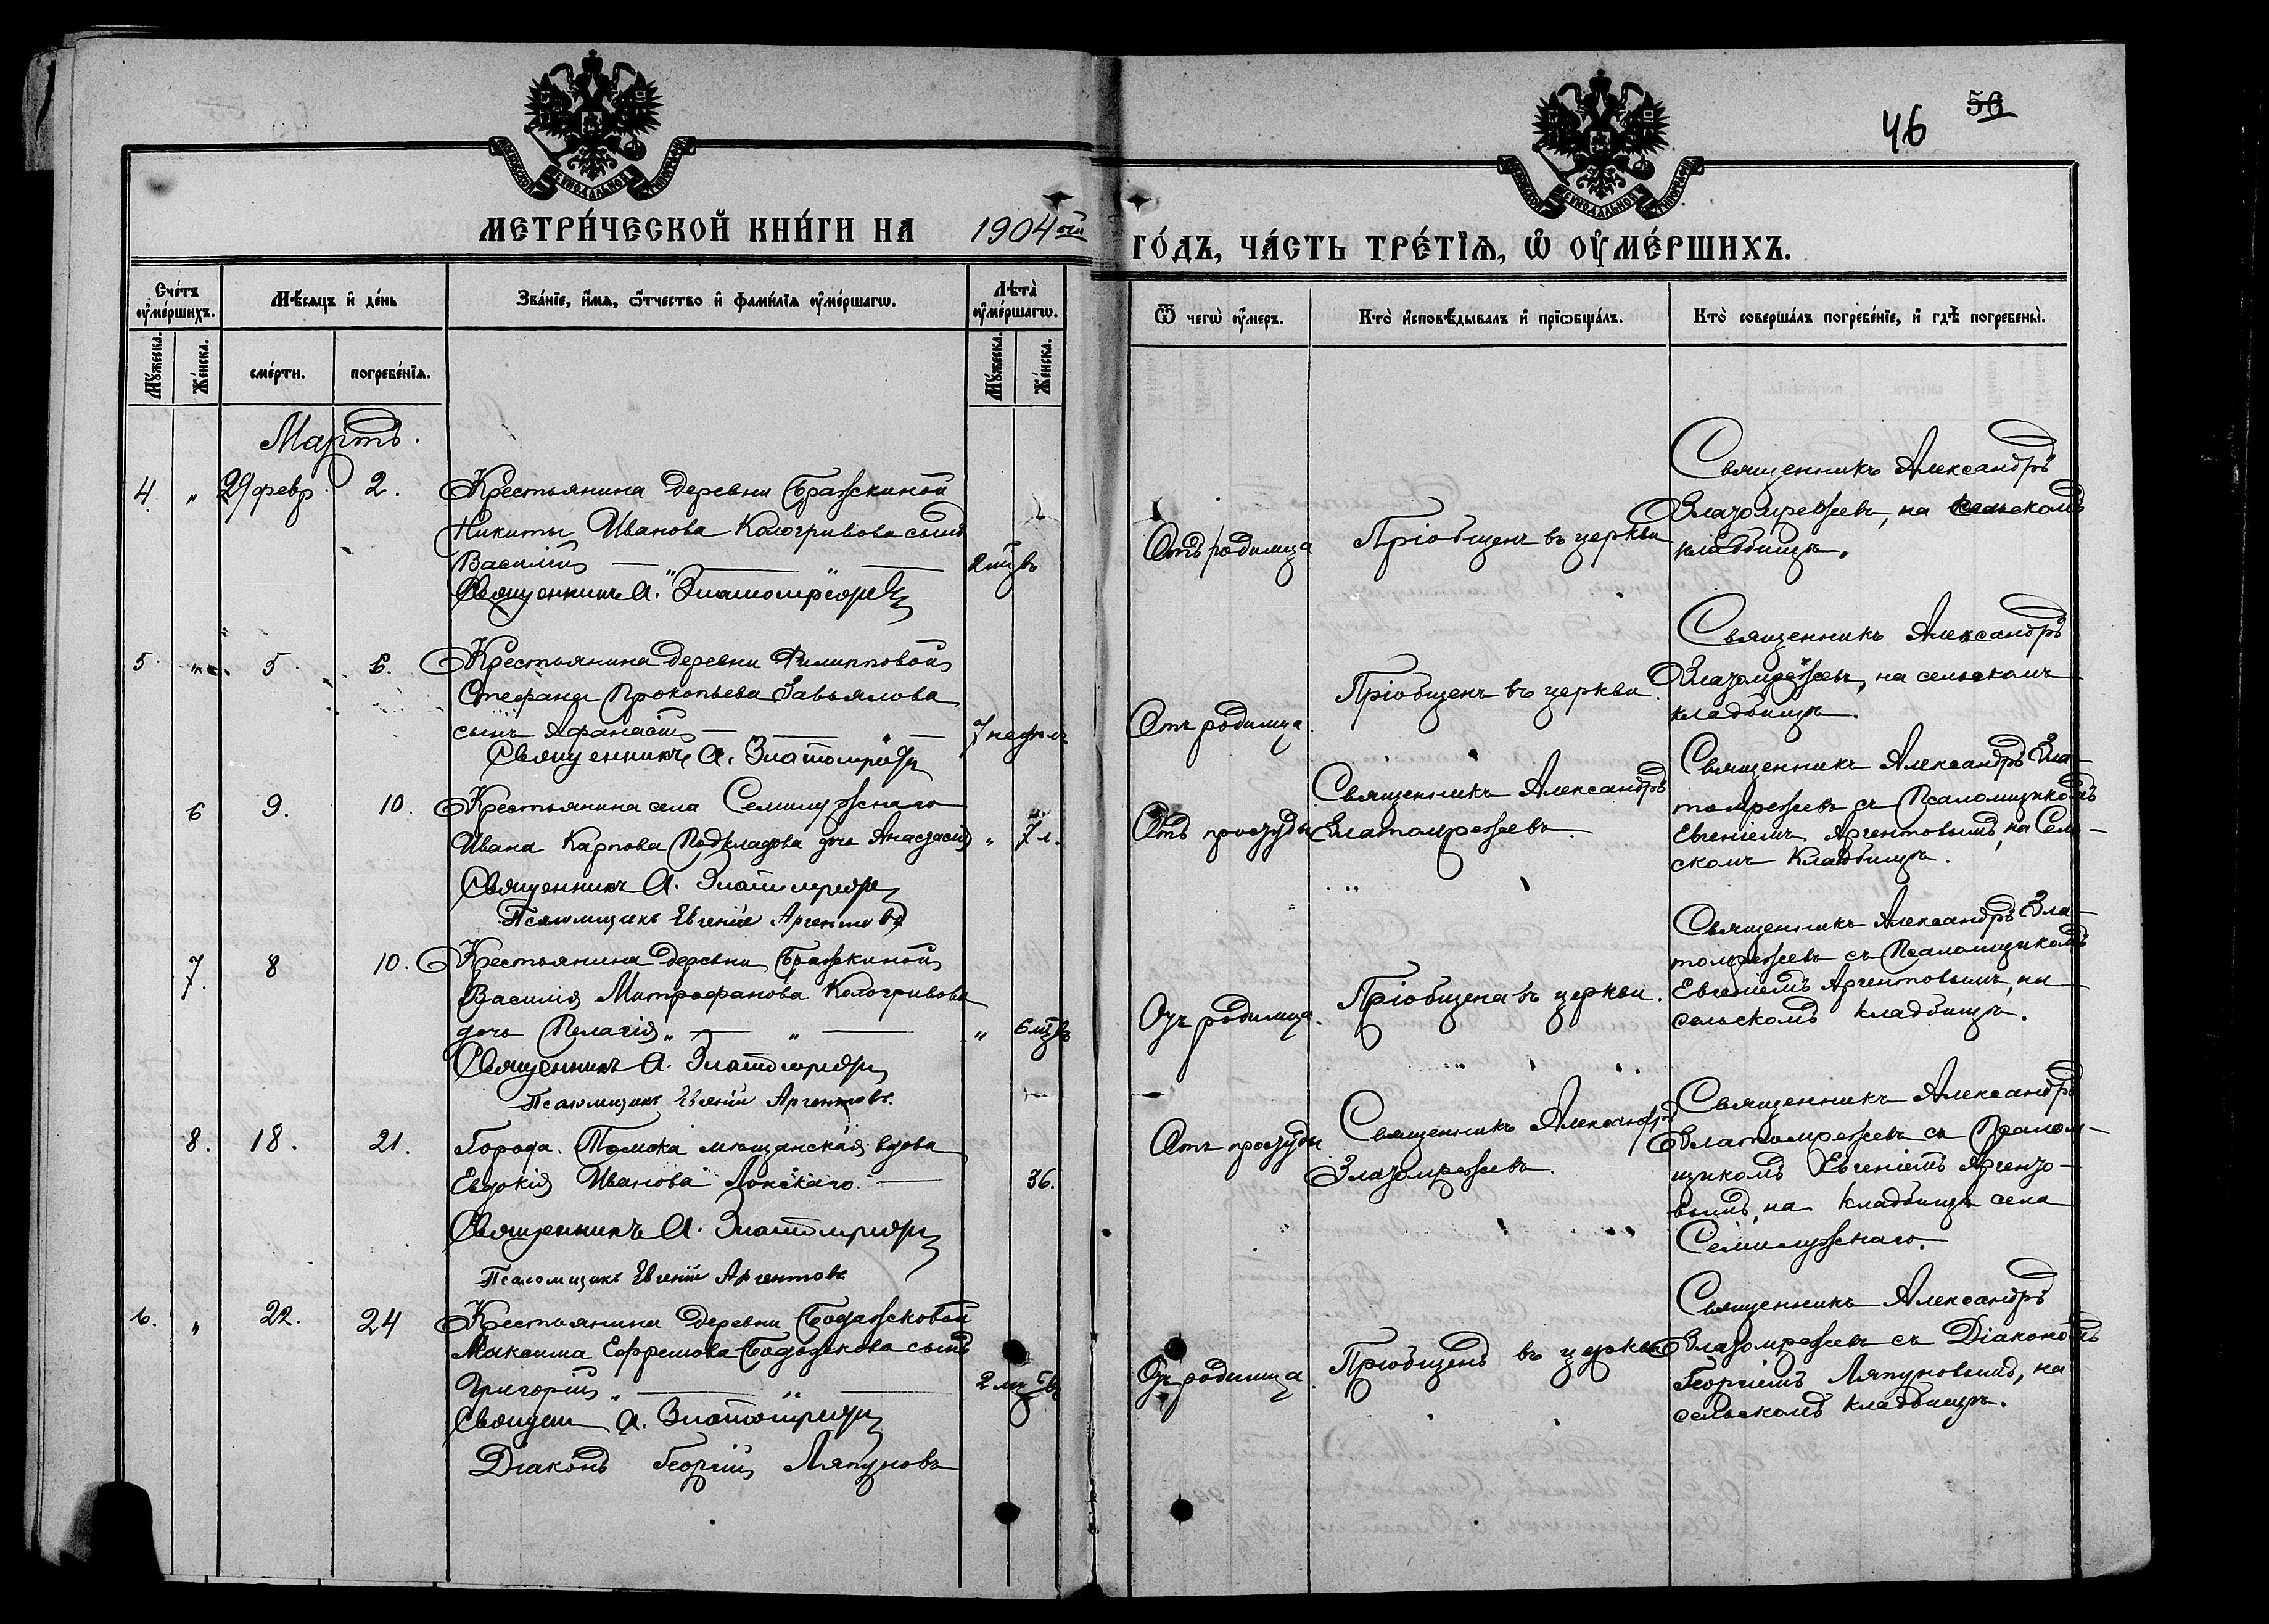 46 56
МЕТРИ́ЧЕСКОЙ КНИ́ГИ НА 1904ый ГО́ДЪ, ЧА́СТЬ ТРЕ́ТІѦ, Ѡ ОУМЕ́РШИХЪ.
Сче́тъ оумершихъ.
Мѣ́сяцъ и де́нь
Зва́нїе, и́мѧ, ѻ́тчество и фами́лїѧ оуме́ршагѡ.
Лѣта̀ оуме́ршагѡ.
Ѿ чегѡ̀ оу́меръ.
Кто̀ исповѣ́дывалъ и прїѡбща́лъ.
Кто̀ соверша́лъ погребе́нїе, и гдѣ̀ погребены̀.
Му́жеска.
Же́нска.
сме́рти.
погребе́нїѧ.
Му́жеска.
Же́нска.
Мартъ.
4. „ 29 февр. 2.
Крестьянина деревни Бражкиной
Никиты Иванова Кологривова сынъ
Василій 2 м-цвъ
Священникъ А. Златомрежевъ
Отъ родимца
Пріобщенъ въ церкви
Священникъ Александръ
Златомрежевъ, на сельскомъ
кладбищѣ.
5. „ 5. 6.
Крестьянина деревни Филипповой
Стефана Прокопьева Завьялова
сынъ Афанасій 7 недѣль
Священникъ А. Златомрежевъ
Отъ родимца
Пріобщенъ въ церкви.
Священникъ Александръ
Златомрежевъ, на сельскомъ
кладбищѣ.
6 9. 10.
Крестьянина села Семилужнаго
Ивана Карпова Подкладова дочь Анастасія „ 7 л.
Священникъ А. Златомрежевъ
Псаломщикъ Евгеній Аргентовъ
Отъ простуды
Священникъ Александръ
Златомрежевъ.
Священникъ Александръ Зла-
томрежевъ съ Псаломщикомъ
Евгеніемъ Аргентовымъ, на Сель-
скомъ кладбищѣ.
7. 8 10.
Крестьянина деревни Бражкиной
Василія Митрофанова Кологривова
дочь Пелагія „ „ „ 6 м-цвъ
Священникъ А. Златомрежевъ
Псаломщикъ Евгеній Аргентовъ.
Отъ родимца.
Пріобщена въ церкви.
Священникъ Александръ Зла-
томрежевъ съ Псаломщикомъ
Евгеніемъ Аргентовымъ, на
сельскомъ кладбищѣ.
8. 18. 21.
Города Томска мѣщанская вдова
Евдокія Иванова 36.
Священникъ А. Златомрежевъ
Псаломщикъ Евгеній Аргентовъ
Отъ простуды
Священникъ Александръ
Златомрежевъ.
Священникъ Александръ
Златомрежевъ съ Псалом-
щикомъ Евгеніемъ Аргенто-
вымъ, на кладбищѣ села
Семилужнаго.
6. „ 22. 24
Крестьянина деревни
Максима Ефремова сынъ
Григорій „ 2 м-цвъ
Священ А. Златомрежевъ
Діаконъ Георгій Ляпуновъ
Отъ родимца.
Пріобщенъ въ церкви
Священникъ Александръ
Златомрежевъ съ Діакономъ
Георгіемъ Ляпуновымъ, на
сельскомъ кладбищѣ.